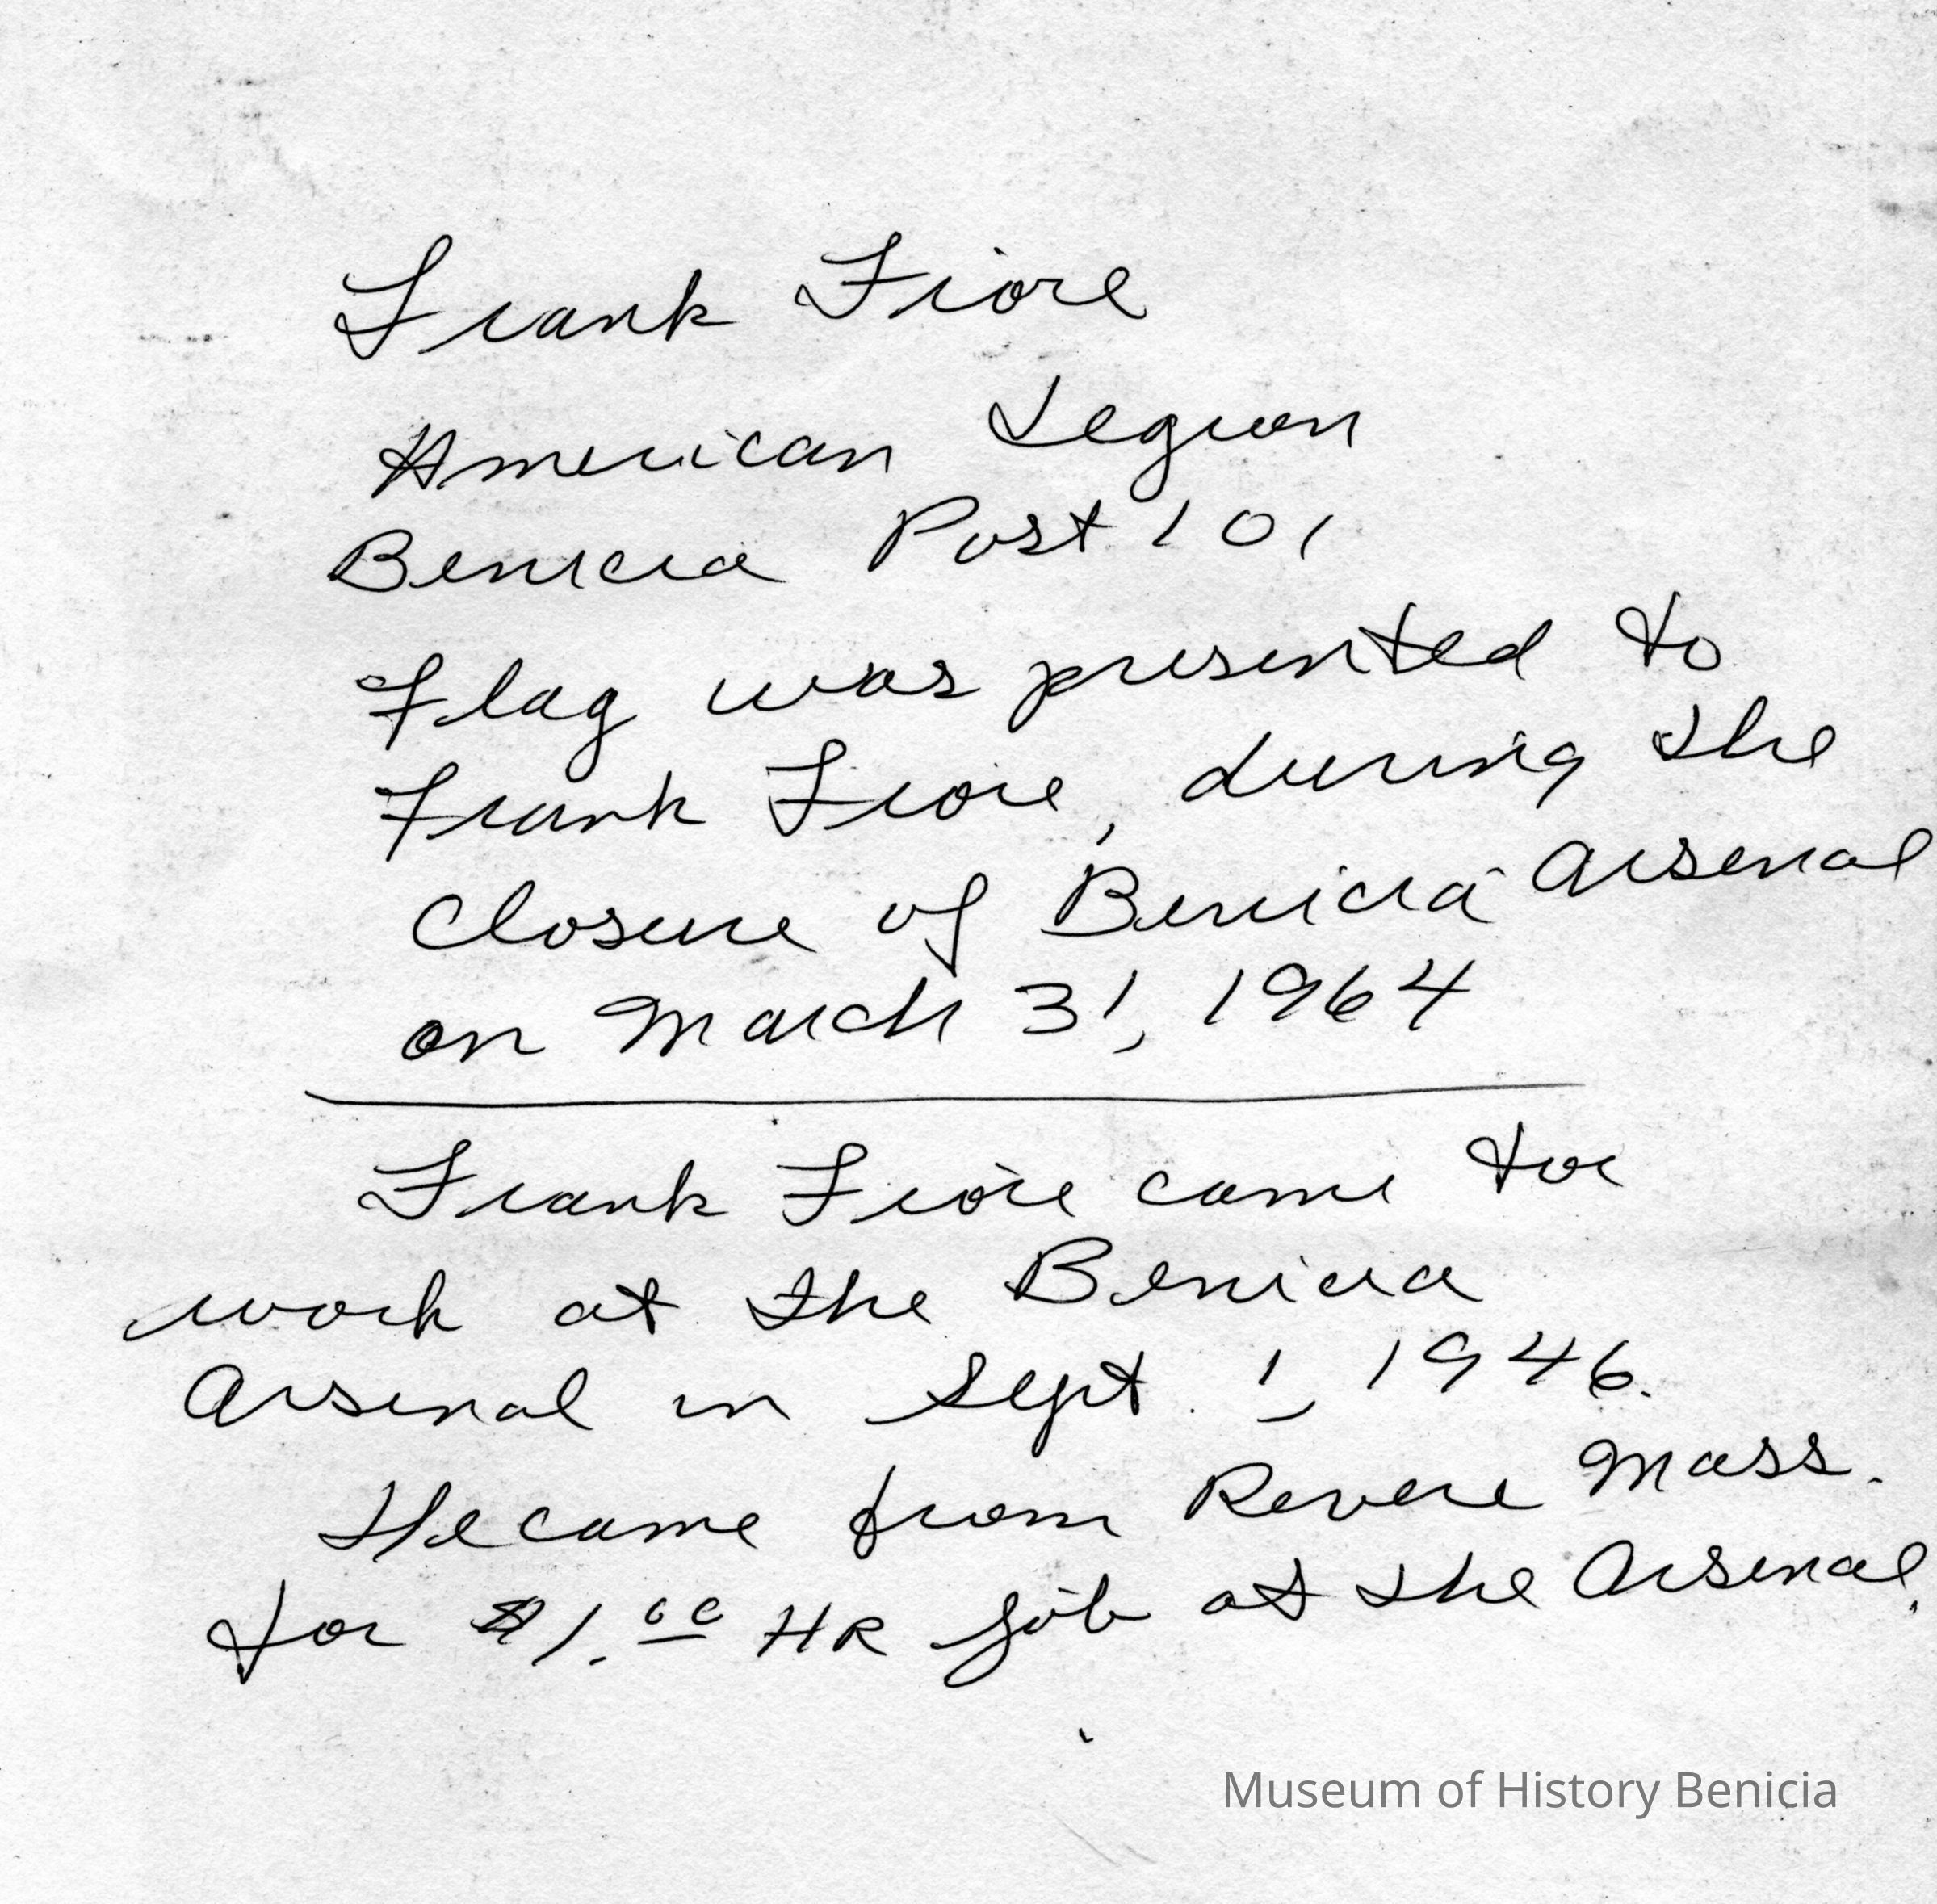 Frank Fiore
American Legion
Benicia Post 101
Flag was presented to
Frank Fiore, during the
Closure of Benicia Arsenal
on March 31, 1964
Frank Fiore came for
work at the Benicia
Arsenal in Sept. 1, 1946.
He came from Revere Mass.
for $1.00 HR job at the Arsenal.
Museum of History Benicia